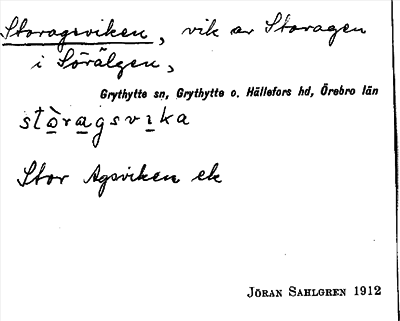 Storagsviken, vik av Storagen
i Sörälgen,
Grythytte sn, Grythytte o. Hällefors hd, Örebro län
stòragsvıka
Stor Agsviken ek
JÖRAN SAHLGREN 1912